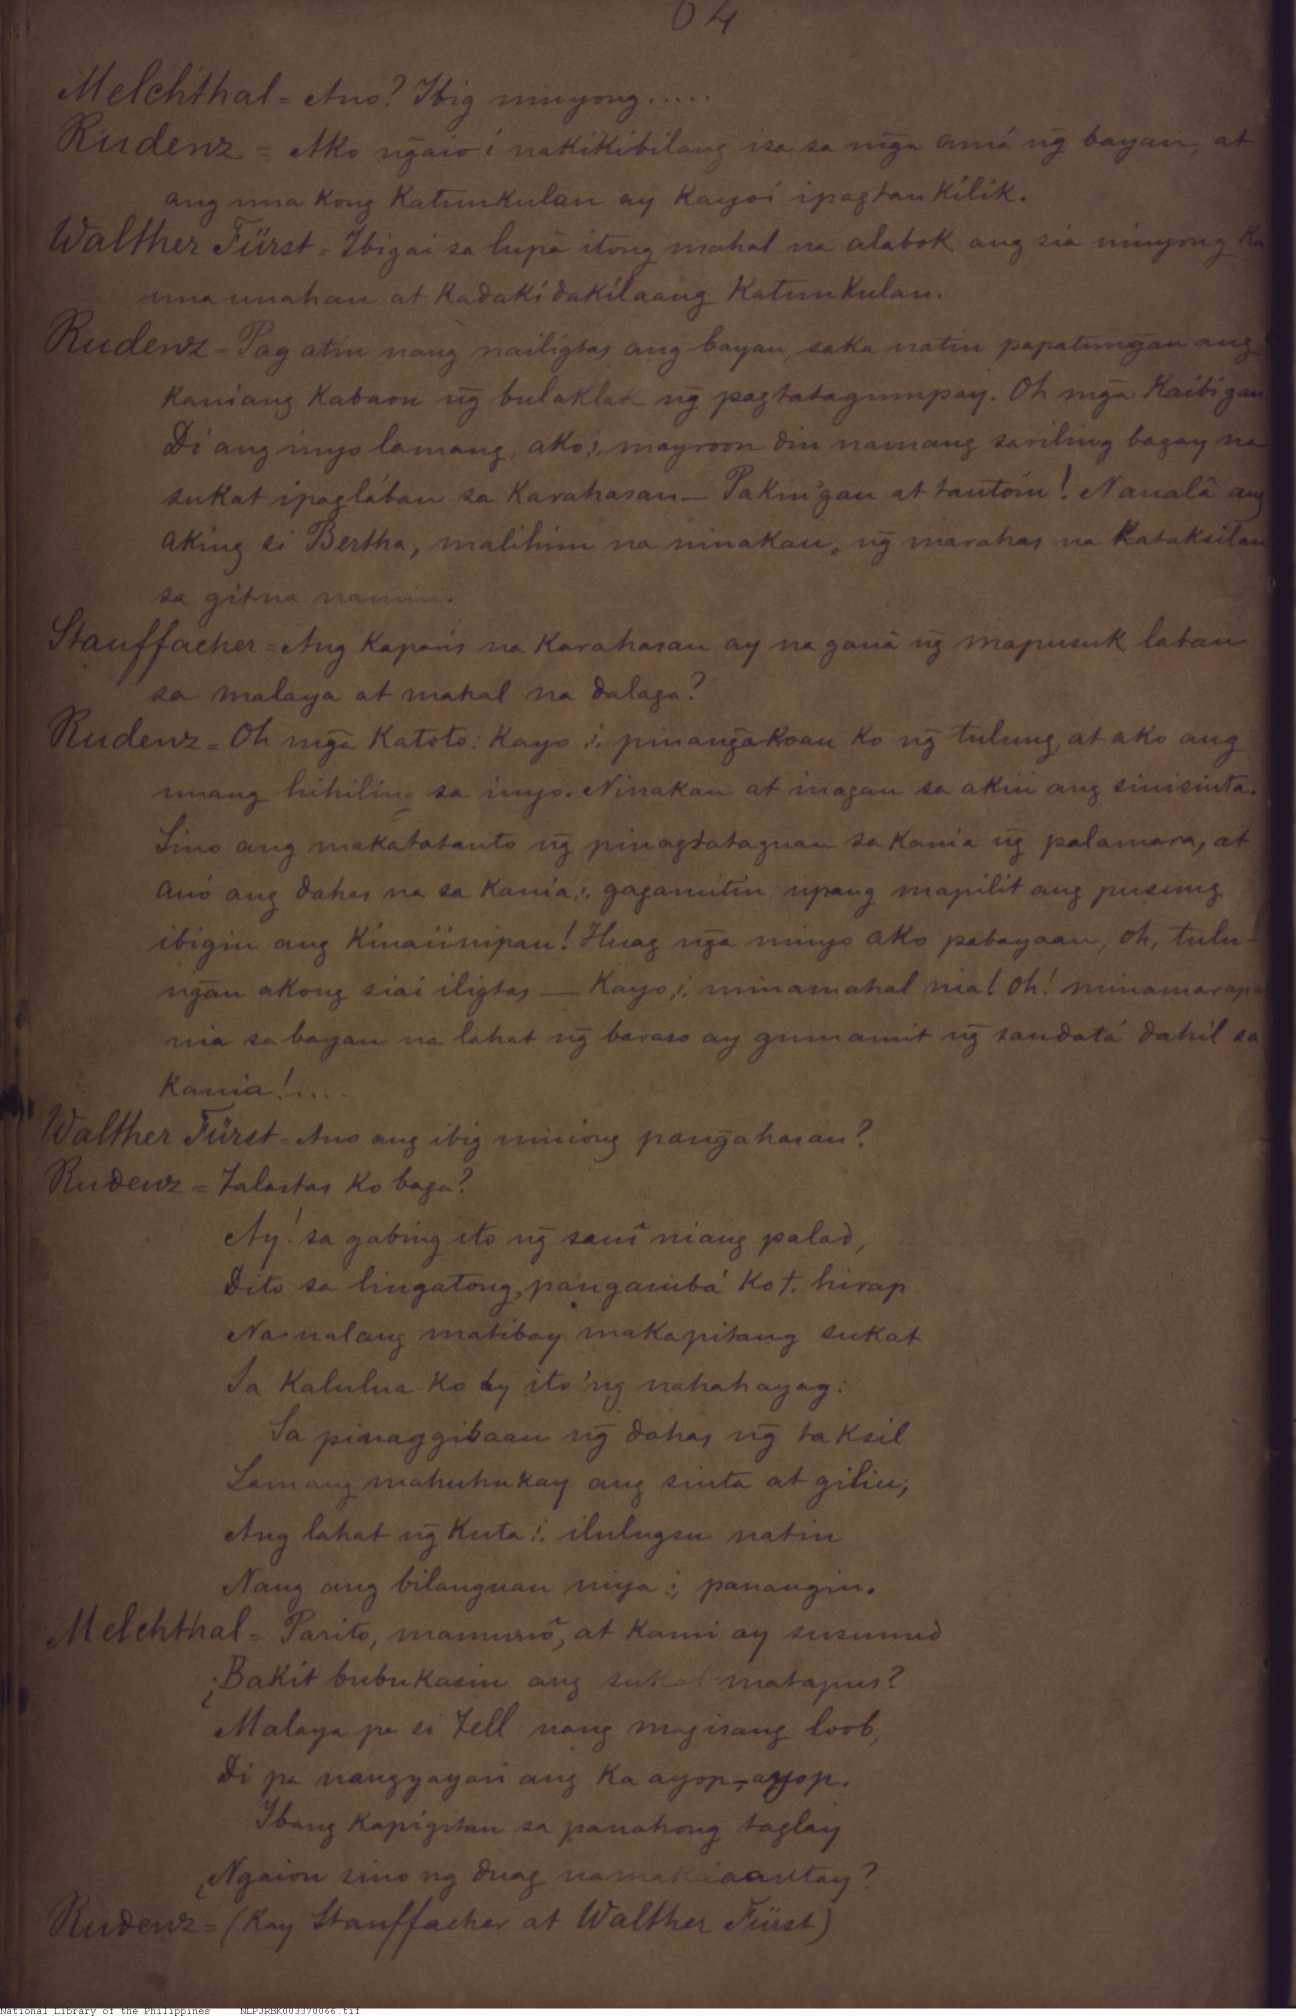 64
Melchthal = Ano? Ibig ninyong.....
Rudenz = Ako n͠gaio í nakikibilang isa sa m͠ga amá n͠g bayan, at
ang una kong katunkulan ay kayoi ipagtankilik.
Walther Fürst = Ibigai sa lupà itong mahal na alabok ang sia ninyong ka
una unahan at kadakídakilaang katunkulan.
Rudenz = Pag atin nang nailigtas ang bayan saka natin papatun͠gan ang
kaniang kabaon n͠g bulaklak n͠g pagtatagumpay. Oh m͠ga kaibigan
Di ang inyo lamang, ako;i, mayroon din namang sariling bagay na
sukat ipaglában sa karahasan — Pakin͠gan at tantoin! Nanalâ ang
aking si Bertha, malihim na ninakau, n͠g marahas na kataksilan
sa gitna namin.
Stauffacher = Ang kaparis na karahasan ay na gauâ n͠g mapusuk laban
sa malaya at mahal na dalaga?
Rudenz = Oh m͠ga katoto: kayo ;i, pinan͠gakoan ko n͠g tulung, at ako ang
unang hihiling sa inyo. Ninakau at inagau sa akin ang sinisinta.
Sino ang makatatanto n͠g pinagtataguan sa kania n͠g palamara, at
anó ang dahas na sa kania;i, gagamitin upang mapilit ang pusung
ibigin ang kinaiinipan! Huag n͠ga ninyo ako pabayaan, oh, tulu-
n͠gan akong siai iligtas — Kayo;i, minamahal nia! Oh! minamarapat
nia sa bayan na lahat n͠g baraso ay gumamit n͠g sandatá dahil sa
kania!....
Walther Fürst = Ano ang ibig niniong pan͠gahasan?
Rudenz = Talastas ko baga?
Ay! sa gabing ito n͠g samî niang palad,
Dito sa lingatong, pangambá ko't. hirap
Na ualang matibay makapitang sukat
Sa kalulua ko ay ito'ng nahahayag:
Sa pinaggibaan n͠g dahas n͠g taksil
Lamang mahuhukay ang sinta at giliu;
Ang lahat n͠g kuta ;i, ilulugsu natin
Nang ang bilanguan niya ;i, panaugin.
Melchthal = Parito, mamunô, at kami ay susunud
¿Bakit bubukasin ang sukat matapus?
Malaya pa si Tell nang magisang loob,
Di pa nangyayari ang ka ayop-ayop.
Ibang kapigitan sa panahong taglay
¿Ngaion sino ng duag
Rudenz = (Kay Stauffacher at Walther Fürst)
National Library of the Philippines NLPJRBK003370066.tif